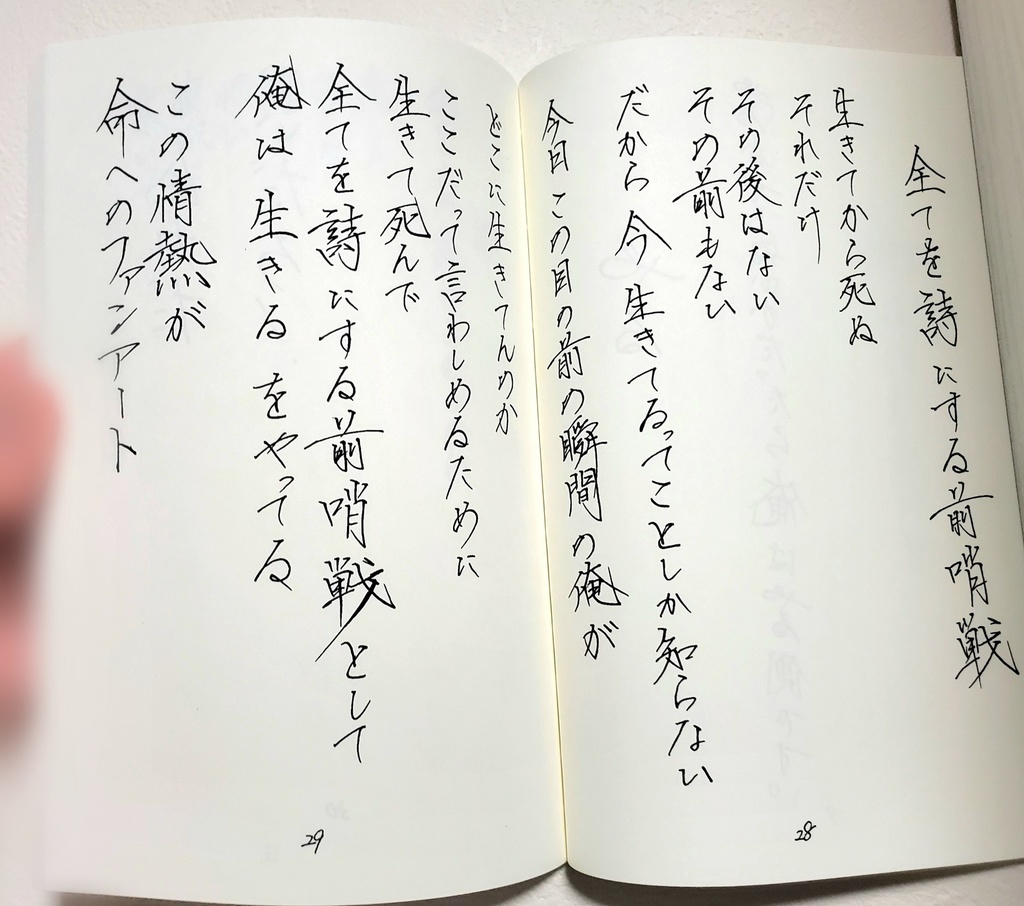 全てを詩にする前哨戦
生きてから死ぬ
それだけ
その後はない
その前もない
だから今生きてるってことしか知らない
今日この目の前の瞬間の俺が
28
どこに生きてんのか
ここだって言わしめるために
生きて死んで
全てを詩にする前哨戦として
俺は生きるをやってる
この情熱が
命へのファンアート
29